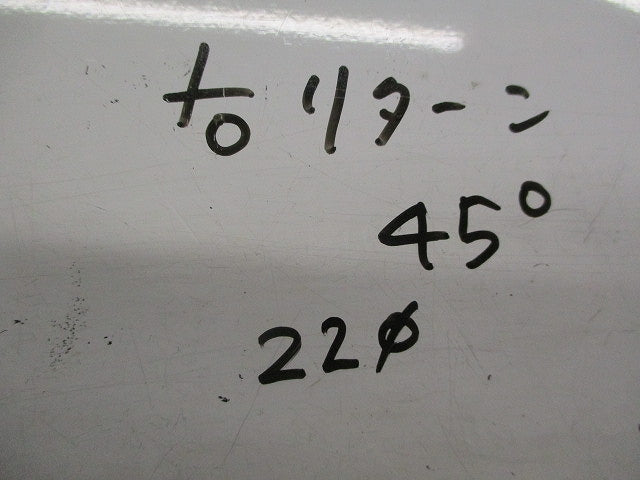 右リターン
45°
22φ